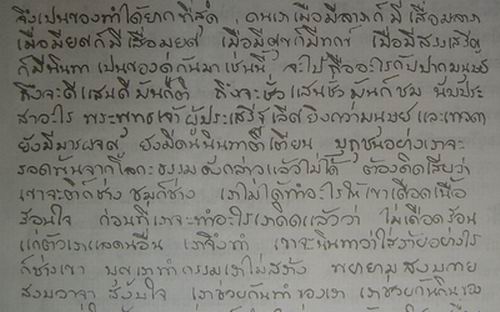 จึงเป็นของทำได้ยากที่สุด คนเราเมื่อมีลาภก็มีเสื่อมลาภ
เมื่อมียศก็มีเสื่อมยศ เมื่อมีสุขก็มีทุกข์ เมื่อมีสรรเสริญ
ก็มีนินทา เป็นของคู่กันมาเช่นนี้ จะไปถืออะไรกับปากมนุษย์
ถึงจะดีแสนดีมันก็ติ ถึงจะชั่วแสนชั่วมันก็ชม นับประ
สาอะไร พระพุทธเจ้าผู้ประเสริฐเลิศยิ่งกว่ามนุษย์และเทวดา
ยังมีมารผจญ ยังมีคนนินทาติเตียน ปุถุชนอย่างเราจะ
รอดพ้นจากโลกะธรรมดังกล่าวแล้วไม่ได้ ต้องคิดเสียว่า
เขาจะติก็ช่าง ชมก็ช่าง เราไม่ได้ทำอะไรให้เขาเดือดเนื้อ
ร้อนใจ ก่อนที่เราจะทำอะไรเราคิดแล้วว่า ไม่เดือดร้อน
แก่ตัวเราและคนอื่น เราจึงทำ เขาจะนินทาว่าใส่ร้ายอย่างไร
ก็ช่างเขา บุญเราทำ กรรมเราไม่สร้าง พยายามสงบกาย
สงบวาจา สงบใจ